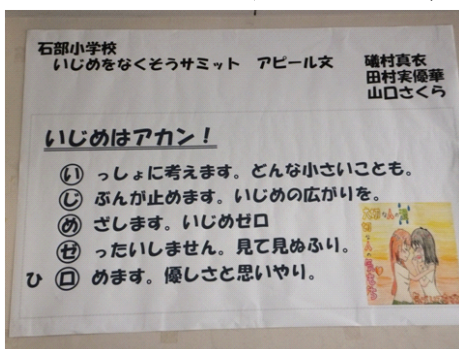 石部小学校
いじめをなくそうサミット アピール文
礒村真衣
田村実優華
山口さくら
いじめはアカン！
い っしょに考えます。どんな小さいことも。
じ ぶんが止めます。いじめの広がりを。
め ざします。いじめゼロ
ぜ ったいしません。見て見ぬふり。
ひ ロ めます。優しさと思いやり。